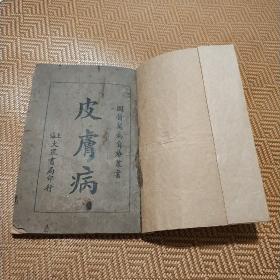 國醫萬病自療叢書
皮膚病
上海大眾書局印行